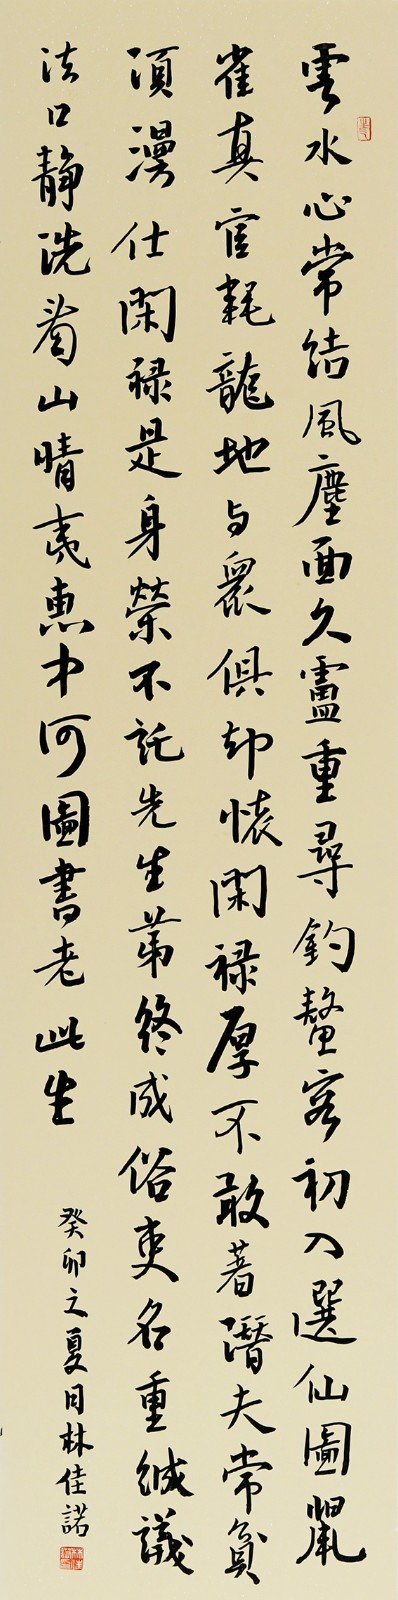 雲水心常結風塵面久盧重尋釣鰲客初入選仙圖鼠
雀真官耗龍地与衆俱却懷閑祿厚不敢著潛夫常貧
須漫仕閑祿是身榮不託先生第終成俗吏名重緘議
法口静洗看山晴夷惠中何圖書老此生
癸卯之夏月林佳諾